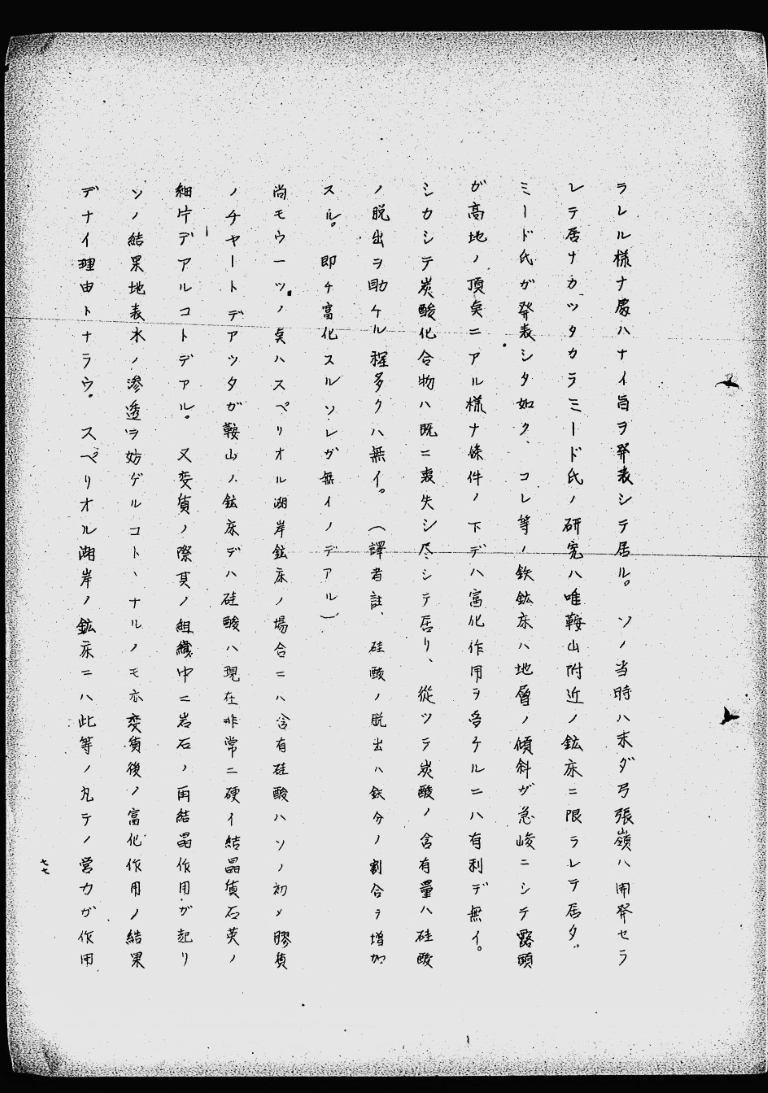 ラレル様ナ慶ハナイ旨ヲ発表シテ居ル。 ソノ当時ハ末ダ弓張嶺ハ開発セラ
レテ居ナカツタカラミード氏ノ研究ハ唯鞍山附近ノ鉱床ニ限ラレテ居タ。
ミード氏ガ発表シタ如ク、コレ等ノ鉄鉱床ハ地層ノ傾斜ガ急峻ニシテ露頭
ガ高地ノ頂奌ニアル様ナ條件ノ下デハ富化作用ヲ受ケルニハ有利デ無イ。
シカシテ炭酸化合物ハ既ニ喪失シ尽シテ居リ、従ツテ炭酸ノ含有量ハ硅酸
ノ脱出ヲ助ケル程多クハ無イ。(譯者註、硅酸ノ脱出ハ鉄分ノ割合ヲ増加
スル。即チ富化スルソレガ無イノデアル)
尚モウ一ツノ奌ハスペリオル湖岸鉱床ノ場合ニハ含有硅酸ハソノ初メ膠質
ノチャートデアツタガ鞍山ノ鉱床デハ硅酸ハ現在非常ニ硬イ結晶質石英ノ
細片デアルコトデアル。 又変質ノ際其ノ組織中ニ岩石ノ再結晶作用ガ起リ
ソノ結果地表水ノ滲透ヲ妨ゲルコトヽナルノモ亦変質後ノ富化作用ノ結果
デナイ理由トナラウ。 スペリオル湖岸ノ鉱床ニハ此等ノ凡テノ営力ガ作用
七七